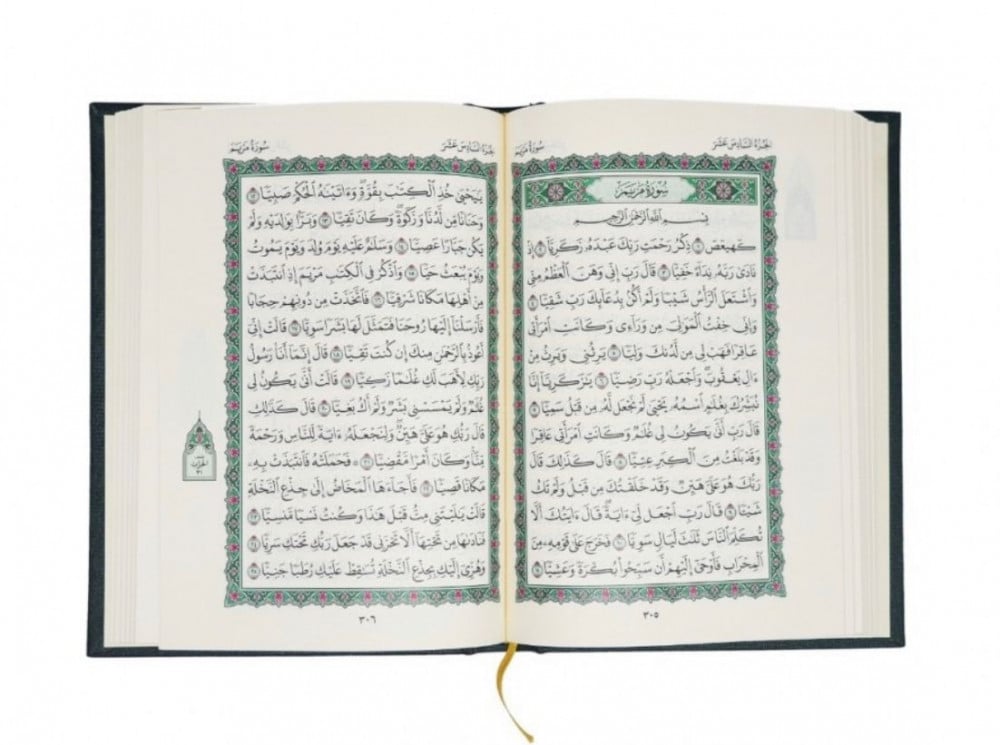 الجزء السادس عشر
سورة مريم
سُورَةُ مَرْيَمَ
بِسْمِ اللَّهِ الرَّحْمَٰنِ الرَّحِيمِ
كٓهيعٓصٓ ١ ذِكْرُ رَحْمَتِ رَبِّكَ عَبْدَهُۥ زَكَرِيَّآ ٢ إِذْ
نَادَىٰ رَبَّهُۥ نِدَآءً خَفِيًّا ٣ قَالَ رَبِّ إِنِّى وَهَنَ ٱلْعَظْمُ مِنِّى
وَٱشْتَعَلَ ٱلرَّأْسُ شَيْبًا وَلَمْ أَكُنۢ بِدُعَآئِكَ رَبِّ شَقِيًّا ٤
وَإِنِّى خِفْتُ ٱلْمَوَٰلِىَ مِن وَرَآءِى وَكَانَتِ ٱمْرَأَتِى
عَاقِرًا فَهَبْ لِى مِن لَّدُنكَ وَلِيًّا ٥ يَرِثُنِى وَيَرِثُ مِنْ
ءَالِ يَعْقُوبَ ۖ وَٱجْعَلْهُ رَبِّ رَضِيًّا ٦ يَٰزَكَرِيَّآ إِنَّا
نُبَشِّرُكَ بِغُلَٰمٍ ٱسْمُهُۥ يَحْيَىٰ لَمْ نَجْعَل لَّهُۥ مِن قَبْلُ سَمِيًّا ٧
قَالَ رَبِّ أَنَّىٰ يَكُونُ لِى غُلَٰمٌ وَكَانَتِ ٱمْرَأَتِى عَاقِرًا
وَقَدْ بَلَغْتُ مِنَ ٱلْكِبَرِ عِتِيًّا ٨ قَالَ كَذَٰلِكَ قَالَ
رَبُّكَ هُوَ عَلَىَّ هَيِّنٌ وَقَدْ خَلَقْتُكَ مِن قَبْلُ وَلَمْ تَكُ
شَيْـًٔا ٩ قَالَ رَبِّ ٱجْعَل لِّىٓ ءَايَةً ۚ قَالَ ءَايَتُكَ أَلَّا
تُكَلِّمَ ٱلنَّاسَ ثَلَٰثَ لَيَالٍ سَوِيًّا ١٠ فَخَرَجَ عَلَىٰ قَوْمِهِۦ مِنَ
ٱلْمِحْرَابِ فَأَوْحَىٰٓ إِلَيْهِمْ أَن سَبِّحُوا۟ بُكْرَةً وَعَشِيًّا ١١
٣٠٥
الجزء السادس عشر
سورة مريم
يَٰيَحْيَىٰ خُذِ ٱلْكِتَٰبَ بِقُوَّةٍ ۖ وَءَاتَيْنَٰهُ ٱلْحُكْمَ صَبِيًّا ١٢
وَحَنَانًا مِّن لَّدُنَّا وَزَكَوٰةً ۖ وَكَانَ تَقِيًّا ١٣ وَبَرًّۢا بِوَٰلِدَيْهِ وَلَمْ
يَكُن جَبَّارًا عَصِيًّا ١٤ وَسَلَٰمٌ عَلَيْهِ يَوْمَ وُلِدَ وَيَوْمَ يَمُوتُ
وَيَوْمَ يُبْعَثُ حَيًّا ١٥ وَٱذْكُرْ فِى ٱلْكِتَٰبِ مَرْيَمَ إِذِ ٱنتَبَذَتْ
مِنْ أَهْلِهَا مَكَانًا شَرْقِيًّا ١٦ فَٱتَّخَذَتْ مِن دُونِهِمْ حِجَابًا
فَأَرْسَلْنَآ إِلَيْهَا رُوحَنَا فَتَمَثَّلَ لَهَا بَشَرًا سَوِيًّا ١٧ قَالَتْ إِنِّىٓ
أَعُوذُ بِٱلرَّحْمَٰنِ مِنكَ إِن كُنتَ تَقِيًّا ١٨ قَالَ إِنَّمَآ أَنَا۠ رَسُولُ
رَبِّكِ لِأَهَبَ لَكِ غُلَٰمًا زَكِيًّا ١٩ قَالَتْ أَنَّىٰ يَكُونُ لِى
غُلَٰمٌ وَلَمْ يَمْسَسْنِى بَشَرٌ وَلَمْ أَكُ بَغِيًّا ٢٠ قَالَ كَذَٰلِكِ
قَالَ رَبُّكِ هُوَ عَلَىَّ هَيِّنٌ ۖ وَلِنَجْعَلَهُۥٓ ءَايَةً لِّلنَّاسِ وَرَحْمَةً
مِّنَّا ۚ وَكَانَ أَمْرًا مَّقْضِيًّا ٢١ ۞ فَحَمَلَتْهُ فَٱنتَبَذَتْ بِهِۦ
مَكَانًا قَصِيًّا ٢٢ فَأَجَآءَهَا ٱلْمَخَاضُ إِلَىٰ جِذْعِ ٱلنَّخْلَةِ
قَالَتْ يَٰلَيْتَنِى مِتُّ قَبْلَ هَٰذَا وَكُنتُ نَسْيًا مَّنسِيًّا ٢٣
فَنَادَىٰهَا مِن تَحْتِهَآ أَلَّا تَحْزَنِى قَدْ جَعَلَ رَبُّكِ تَحْتَكِ سَرِيًّا ٢٤
وَهُزِّىٓ إِلَيْكِ بِجِذْعِ ٱلنَّخْلَةِ تُسَٰقِطْ عَلَيْكِ رُطَبًا جَنِيًّا ٢٥
الحزب
٣١
٣٠٦